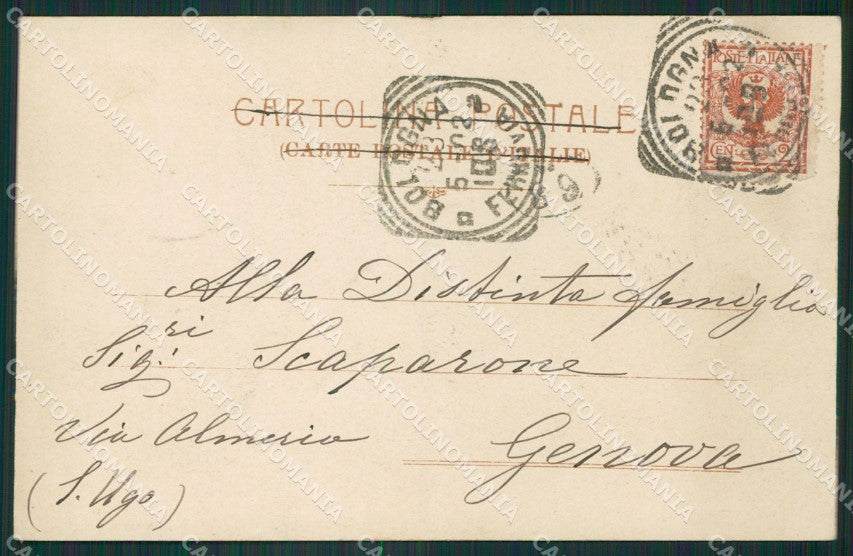 CARTOLINA POSTALE
(CARTE POSTALE D'ITALIE)
POSTE ITALIANE
CEN. 2
BOLOGNA
FERROVIA
5
02
10S
Alla Distinta famiglia
Sig.ri Scaparone
Via Almeria Genova
(S. Ugo)
CARTOLINOMANIA